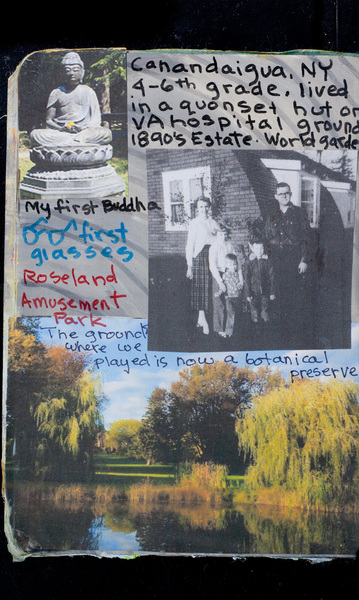 Canandaigua, NY
4-6th grade, lived
in a quonset hut on
VA hospital ground
1890's Estate. World garde
My first Buddha
first
glasses
Roseland
Amusement
Park
The ground
where we
played is now a botanical
preserve